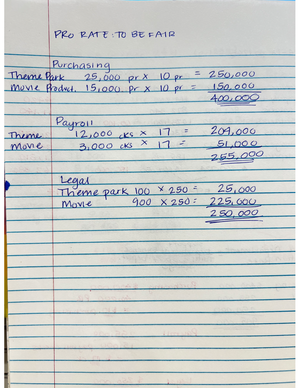 PRO RATE: TO BE FAIR
Purchasing
Theme Park 25,000 pr x 10 pr = 250,000
Movie Product. 15,000 pr x 10 pr = 150,000
400,000
Payroll
Theme 12,000 cks x 17 = 204,000
Movie 3,000 cks x 17 = 51,000
255,000
Legal
Theme park 100 x 250 = 25,000
Movie 900 x 250 = 225,000
250,000